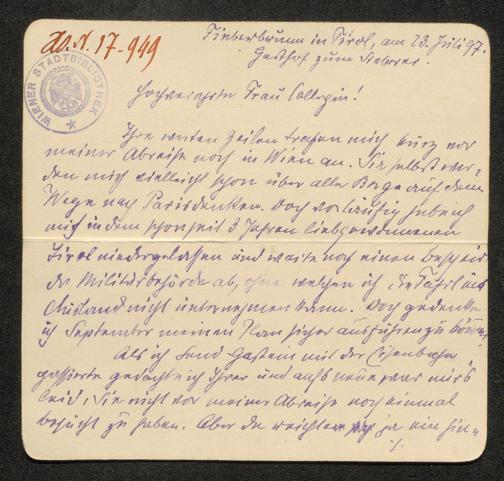 H.I.N. 17.949
WIENER STADTBIBLIOTHEK
Fieberbrunn in Tirol, am 23. Juli 97.
Gasthof zum Sieberer.
Hochverehrte Frau Collegin!
Ihre werten Zeilen trafen mich kurz vor
meiner Abreise noch in Wien an. Sie selbst wer-
den mich vielleicht schon über alle Berge auf dem
Wege nach Paris denken. Doch vorläufig habe ich
mich in dem schon seit 3 Jahren liebgewonnenen
Tirol niedergelassen und warte noch einen Bescheid
der Militärbehörde ab, ohne welchen ich die Fahrt ins
Ausland nicht unternehmen kann. Doch gedenke
ich September meinen Plan sicher ausführen zu können.
Als ich Lend-Gastein mit der Eisenbahn
passierte gedachte ich Ihrer und aufs neue war mir's
leid, Sie nicht vor meiner Abreise noch einmal
besucht zu haben. Aber da reichte ja ein Hin-
./.